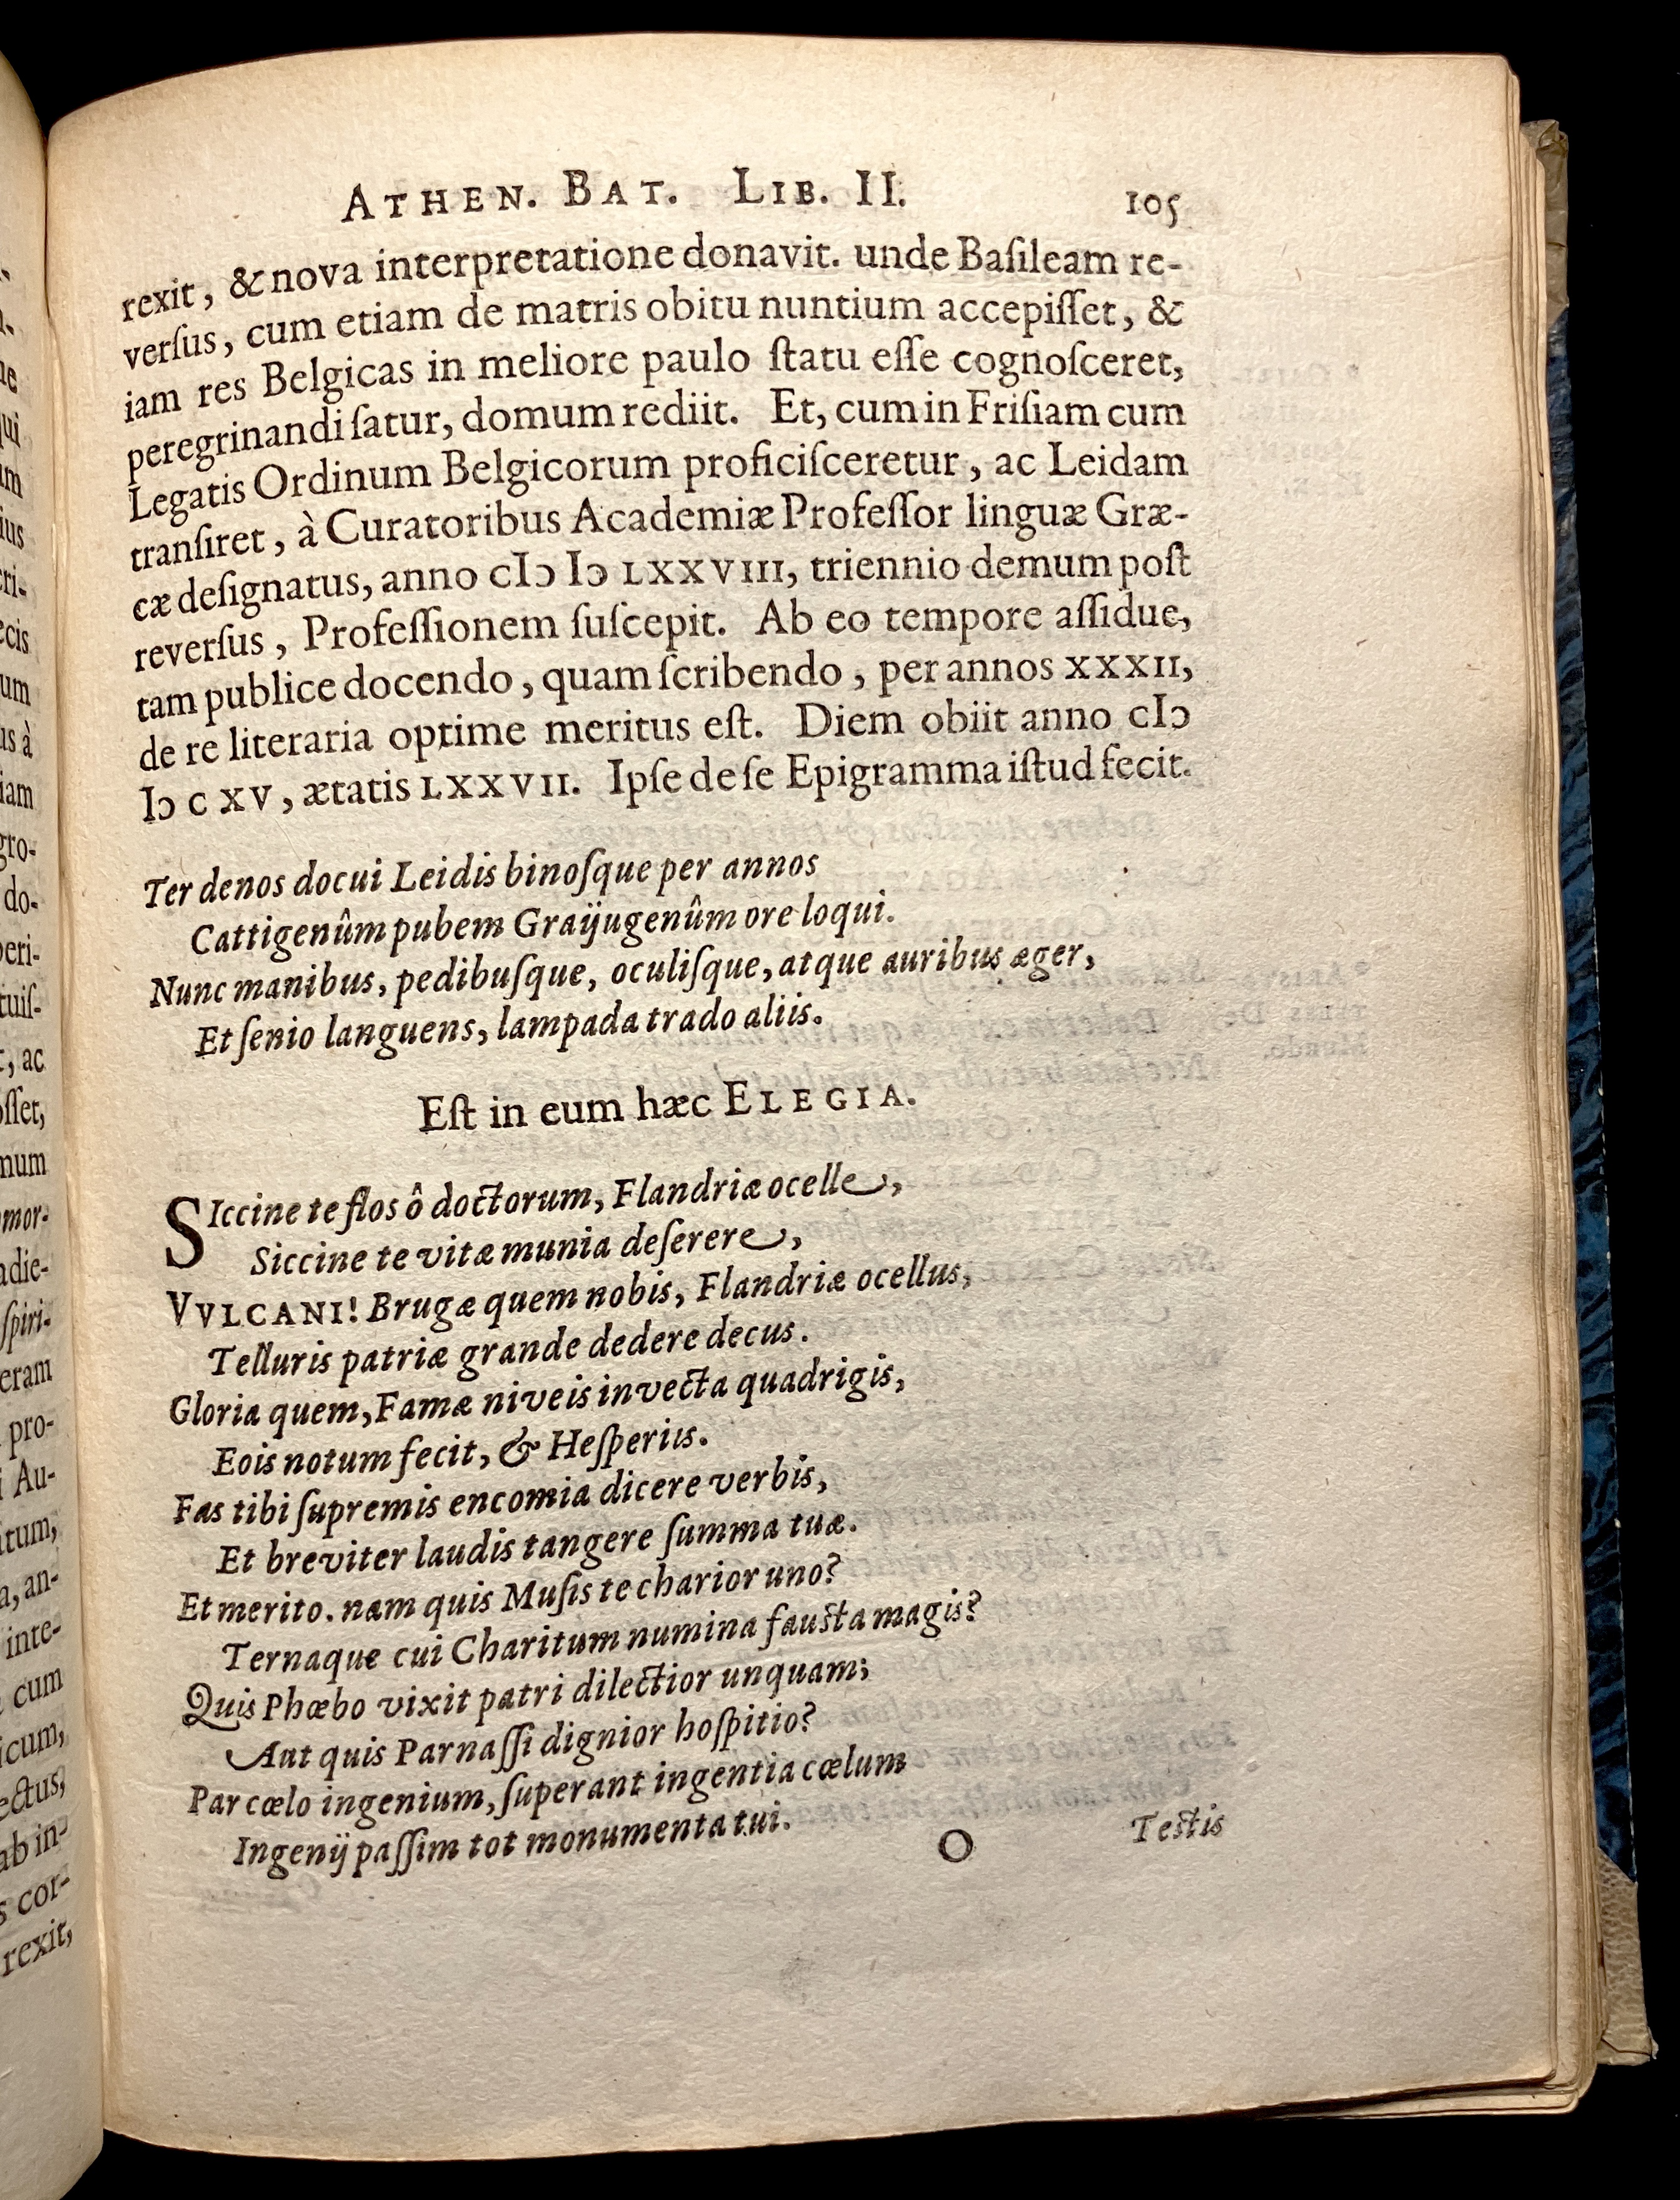 ATHEN. BAT. LIB. II. 105
rexit, & nova interpretatione donavit. unde Baſileam re-
verſus, cum etiam de matris obitu nuntium accepiſſet, &
iam res Belgicas in meliore paulo ſtatu eſſe cognoſceret,
peregrinandi ſatur, domum rediit. Et, cum in Friſiam cum
Legatis Ordinum Belgicorum proficiſceretur, ac Leidam
tranſiret, à Curatoribus Academiæ Profeſſor linguæ Græ-
cæ deſignatus, anno cIↄ Iↄ LXXVIII, triennio demum poſt
reverſus, Profeſſionem ſuſcepit. Ab eo tempore aſſidue,
tam publice docendo, quam ſcribendo, per annos XXXII,
de re literaria optime meritus eſt. Diem obiit anno cIↄ
Iↄ C XV, ætatis LXXVII. Ipſe de ſe Epigramma iſtud fecit.
Ter denos docui Leidis binoſque per annos
Cattigenûm pubem Graijugenûm ore loqui.
Nunc manibus, pedibuſque, oculiſque, atque auribus æger,
Et ſenio languens, lampada trado aliis.
Eſt in eum hæc ELEGIA.
SIccine te flos ô doctorum, Flandriæ ocelle,
Siccine te vitæ munia deſerere,
VVLCANI! Brugæ quem nobis, Flandriæ ocellus,
Telluris patriæ grande dedere decus.
Gloria quem, Famæ niveis invecta quadrigis,
Eois notum fecit, & Heſperiis.
Fas tibi ſupremis encomia dicere verbis,
Et breviter laudis tangere ſumma tuæ.
Et merito. nam quis Muſis te charior uno?
Ternaque cui Charitum numina fauſta magis?
Quis Phœbo vixit patri dilectior unquam;
Aut quis Parnaſſi dignior hoſpitio?
Par cœlo ingenium, ſuperant ingentia cœlum
Ingenij paſſim tot monumenta tui.
O Teſtis